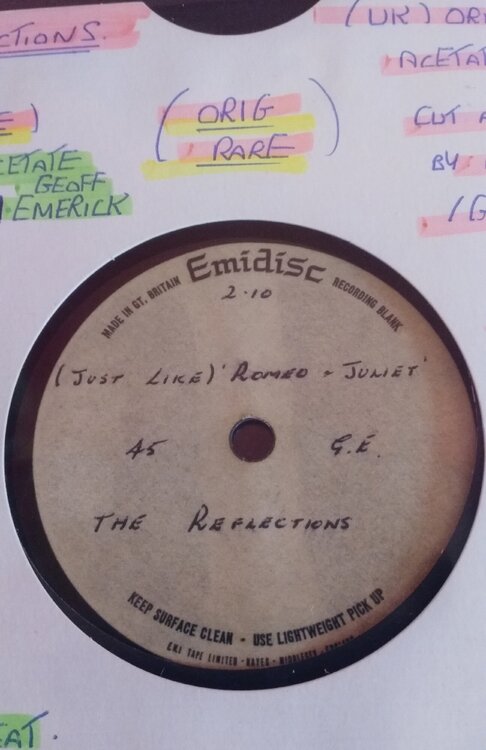 CTIONS.
(UK) ORI
ACETAT
(ORIG
RARE)
CUT A
BY:
/G
E)
CETATE
GEOFF
EMERICK
Emidisc
MADE IN GT. BRITAIN
RECORDING BLANK
2.10
(JUST LIKE) 'ROMEO + JULIET'
45
G.E.
THE REFLECTIONS
KEEP SURFACE CLEAN - USE LIGHTWEIGHT PICK UP
E.M.I TAPE LIMITED - HAYES - MIDDLESEX - ENGLAND
EAT.